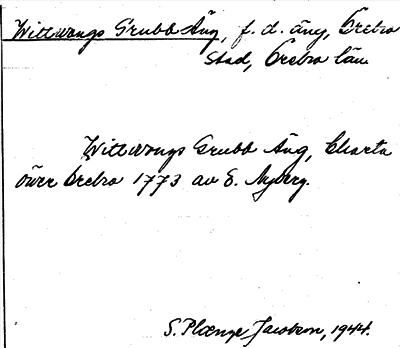 Wittwongs Grubb Äng, f.d. äng, Örebro
stad, Örebro län
Wittwongs Grubb Äng, Charta
öwer Örebro 1773 av E. Nyberg.
S. Plænge Jacobson, 1944.